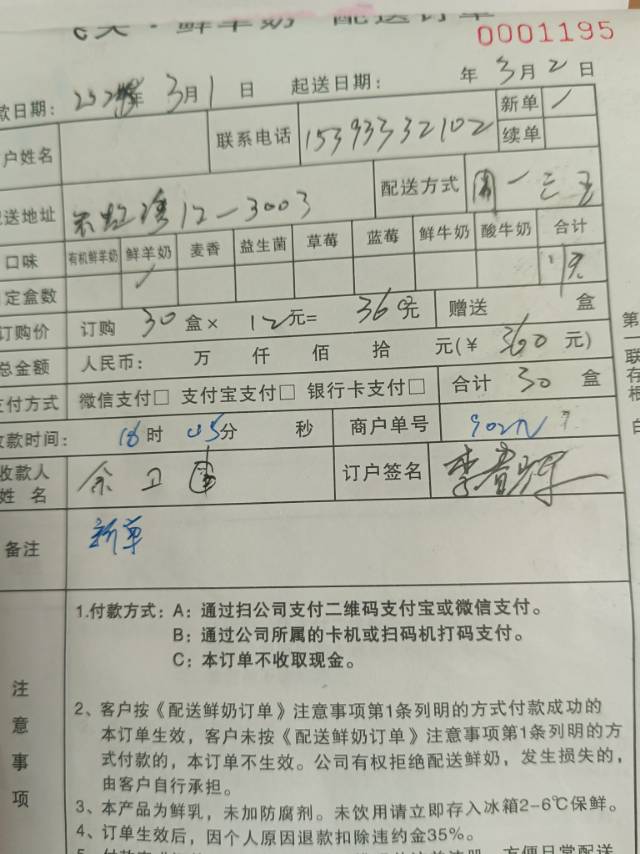 鲜羊奶 配送订单
0001195
款日期: 年 3月1日 起送日期: 年 3月2日
新单
户姓名 联系电话 15393332102 续单
送地址 12-3003 配送方式 周一三五
口味 有机鲜羊奶 鲜羊奶 麦香 益生菌 草莓 蓝莓 鲜牛奶 酸牛奶 合计
定盒数
订购价 订购 30 盒× 12元= 360元 赠送 盒
总金额 人民币: 万 仟 佰 拾 元(¥ 360 元)
支付方式 微信支付□ 支付宝支付□ 银行卡支付□ 合计 30 盒
收款时间: 时 05分 秒 商户单号
收款人姓名 余卫国 订户签名 李贵
备注 新单
注意事项
1.付款方式: A: 通过扫公司支付二维码支付宝或微信支付。
B: 通过公司所属的卡机或扫码机打码支付。
C: 本订单不收取现金。
2、客户按《配送鲜奶订单》注意事项第1条列明的方式付款成功的
本订单生效，客户未按《配送鲜奶订单》注意事项第1条列明的方
式付款的，本订单不生效。公司有权拒绝配送鲜奶，发生损失的，
由客户自行承担。
3、本产品为鲜乳，未加防腐剂。未饮用请立即存入冰箱2-6℃保鲜。
4、订单生效后，因个人原因退款扣除违约金35%。
第一联存根 白